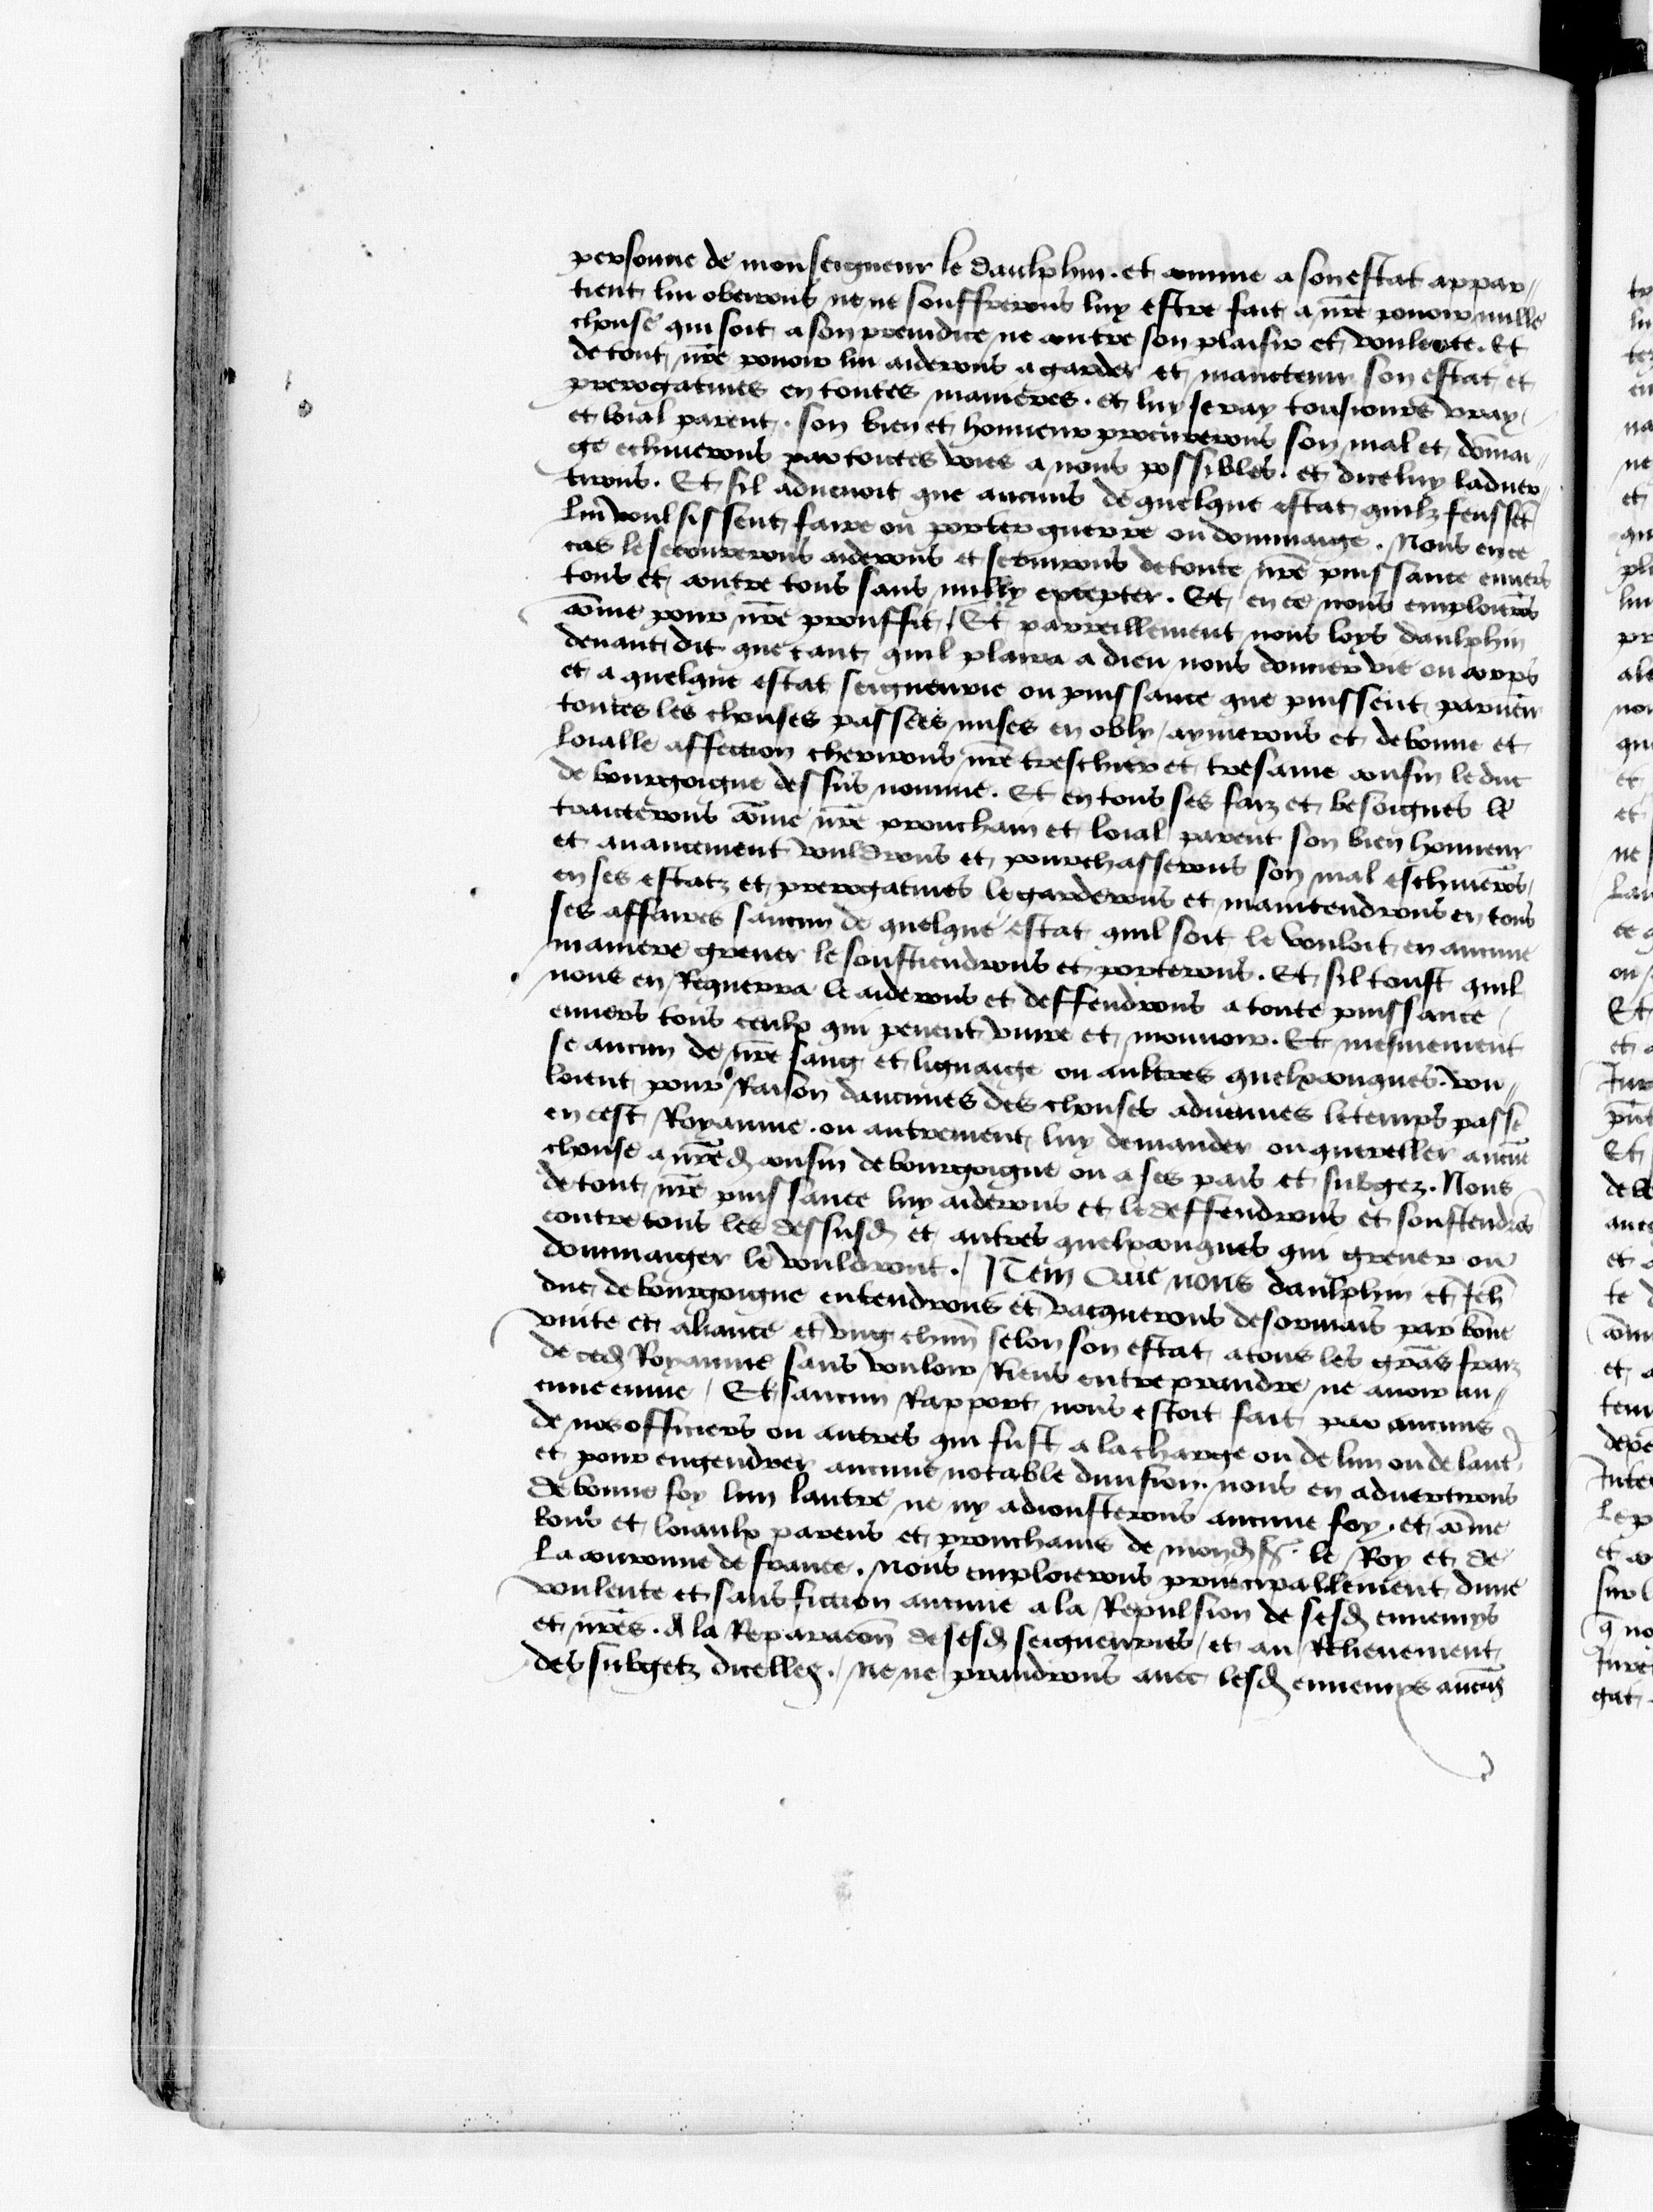 personne de monseigneur le daulphin . et comme a son estat appar〃
tient lui obeirons ne ne souffrerons luy estre fait a nr̃e pouoir nulle
chouse qui soit a son preiudice ne contre son plaisir et voulente . Et
de tout nr̃e pouoir lui aiderons a garder et maintenir son estat et
prerogatiues en toutes manieres . et luy seray tousiours vray
et loial parent . son bien et honneur procurerons son mal et dõmai〃
ge echiuerons par toutes voies a nous possibles . et diceluy laduer〃
tirons . Et sil aduenoit que aucuns de quelque estat quilz feussẽt
lui voulsissent faire ou porter guerre ou dommaige . Nous en ce
cas le secourerons aiderons et seruirons de toute nr̃e puissance enuers
tous et contre tous sans nully excepter . Et en ce nous emploierõs
cõme pour nr̃e prouffit / Et parreillement nous loys daulphin
deuant dit que tant quil plaira a dieu nous donner vie ou corps
et a quelque estat seigneurie ou puissance que puissent paruenir
toutes les chouses passees mises en obly / aymerons et de bonne et
loialle affection cherirons nr̃e treschier et tresame cousin le duc
de bourgoigne dessus nomme . Et en tous ses faiz et besoignes le
traicterons cõme nr̃e prouchain et loial parent son bien honneur
et auancement vouldrons et pourchasserons son mal eschiuerõs /
en ses estatz et prerogatiues le garderons et maintendrons en tous
ses affaires saucun de quelque estat quil soit le vouloit en aucune
maniere greuer le soustiendrons et porterons . Et sil toust quil
nous en Requerra le aiderons et deffendrons a toute puissance
enuers tous ceulx qui peuent viure et mourir . Et mesmement
se aucun de nr̃e sang et lignaige ou aultres quelxconques . vou〃
loient pour Raison daucunes des chouses aduenues le temps passe
en cest Royaume . ou autrement luy demander ou quereller aucũe
chouse a nr̃ed cousin de bourgoigne ou a ses pais et subgez . Nous
de tout nr̃e puissance luy aiderons et le deffendrons et soustendrõs
contre tous les dessusd et autres quelxconques qui greuer ou
dommaiger le vouldront . / ITem Que nous daulphin et Jeh̃
duc de bourgoigne entendrons et vacquerons desormais par bõne
vnite et aliance et vng chũn selon son estat a tous les grãs faiz
de ced Royaume sans vouloir Riens entreprandre ne auoir au〃
cune enuie / Et saucun Rapport nous estoit fait par aucuns
de nos officiers ou autres qui fust a la charge ou de lun ou de laut̃
et pour engendrer aucune notable diuision . nous en aduertirons
de bonne foy lun lautre ne ny adiousterons aucune foy . et cõme
bons et loiaulx parens et prouchains de mond s̃ . le Roy et de
la couronne de france . nous emploierons principallement dune
voulente et sans fiction aucune a la Repulsion de sesd ennemys
et nr̃es . A la Reparacõn de sesd seigneuries / et au Relieuement
des subgetz dicelles . / ne ne prandrons auec lesd ennemys aucũs